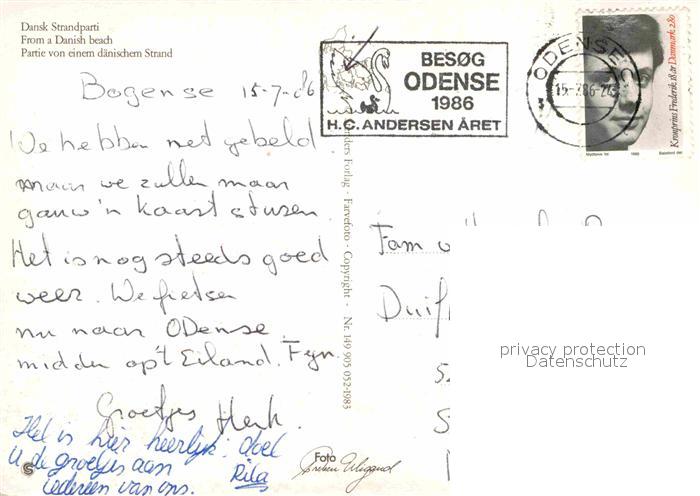 Dansk Strandparti
From a Danish beach
Partie von einem dänischem Strand
Bogense 15-7-86
We hebben net gebeld
maar we zullen maar
gauw 'n kaart sturen.
Het is nog steeds goed
weer. We fietsen
nu naar ODense.
midden op 't Eiland. Fyn
Groetjes Henk.
Het is hier heerlijk: doe
U de groetjes aan
iedereen van ons. Rita
BESØG
ODENSE
1986
H.C. ANDERSEN ÅRET
ODENSE C
Kronprins Frederik 18 år Danmark 2.80
Forlag - Farvefoto - Copyright - Nr. 149 905 052-1983
Fam
Duif
privacy protection
Datenschutz
Foto